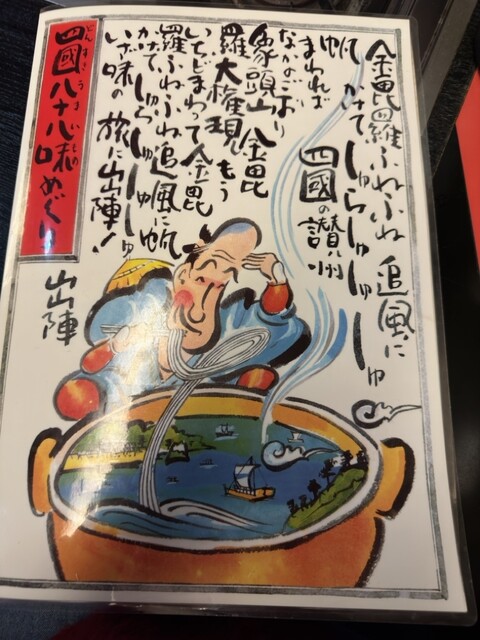 金毘羅ふねふね 追風に
帆かけて しゅらしゅしゅしゅ
まわれば 四國の讃州
なかのごおり
象頭山 金毘
羅大権現 もう
いちどまわって金毘
羅ふねふね追風に帆
かけて しゅらしゅしゅしゅ
いざ味の旅に出陣!
四國八十八味めぐり
出陣